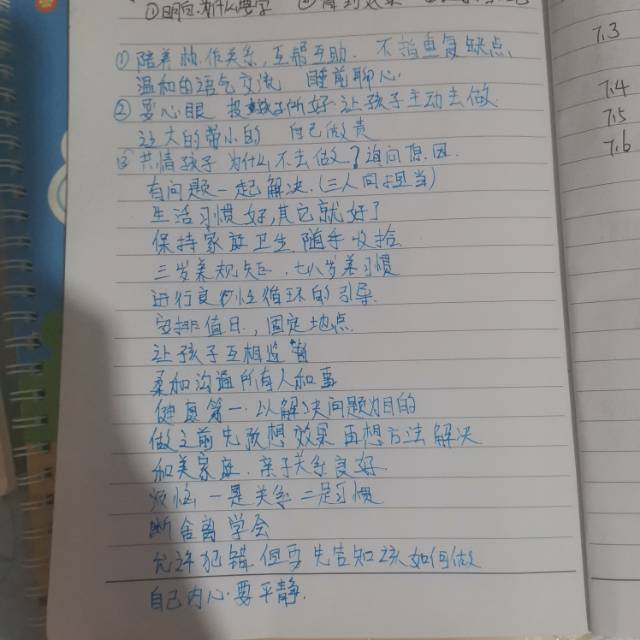 ①明白为什么要学
①随着协作关系,互帮互助。不指鱼复缺点,
温和的语气交流 睡前聊心
②耍心眼 投孩子所好 让孩子主动去做
让大的带小的 自己做责
③共情孩子 为什么不去做?追问原因
有问题一起解决(三人同担当)
生活习惯好,其它就好了
保持家庭卫生 随手收拾
三岁养规矩,七八岁养习惯
进行良性循环的引导
安排值日,固定地点
让孩子互相监督
柔和沟通所有人和事
健康第一 以解决问题为目的
做之前先敢想效果 再想方法解决
和美家庭,亲子关系良好
烦恼一是关系 二是习惯
断舍离学会
允许犯错,但要先告知孩如何做
自己内心要平静
7.3
7.4
7.5
7.6